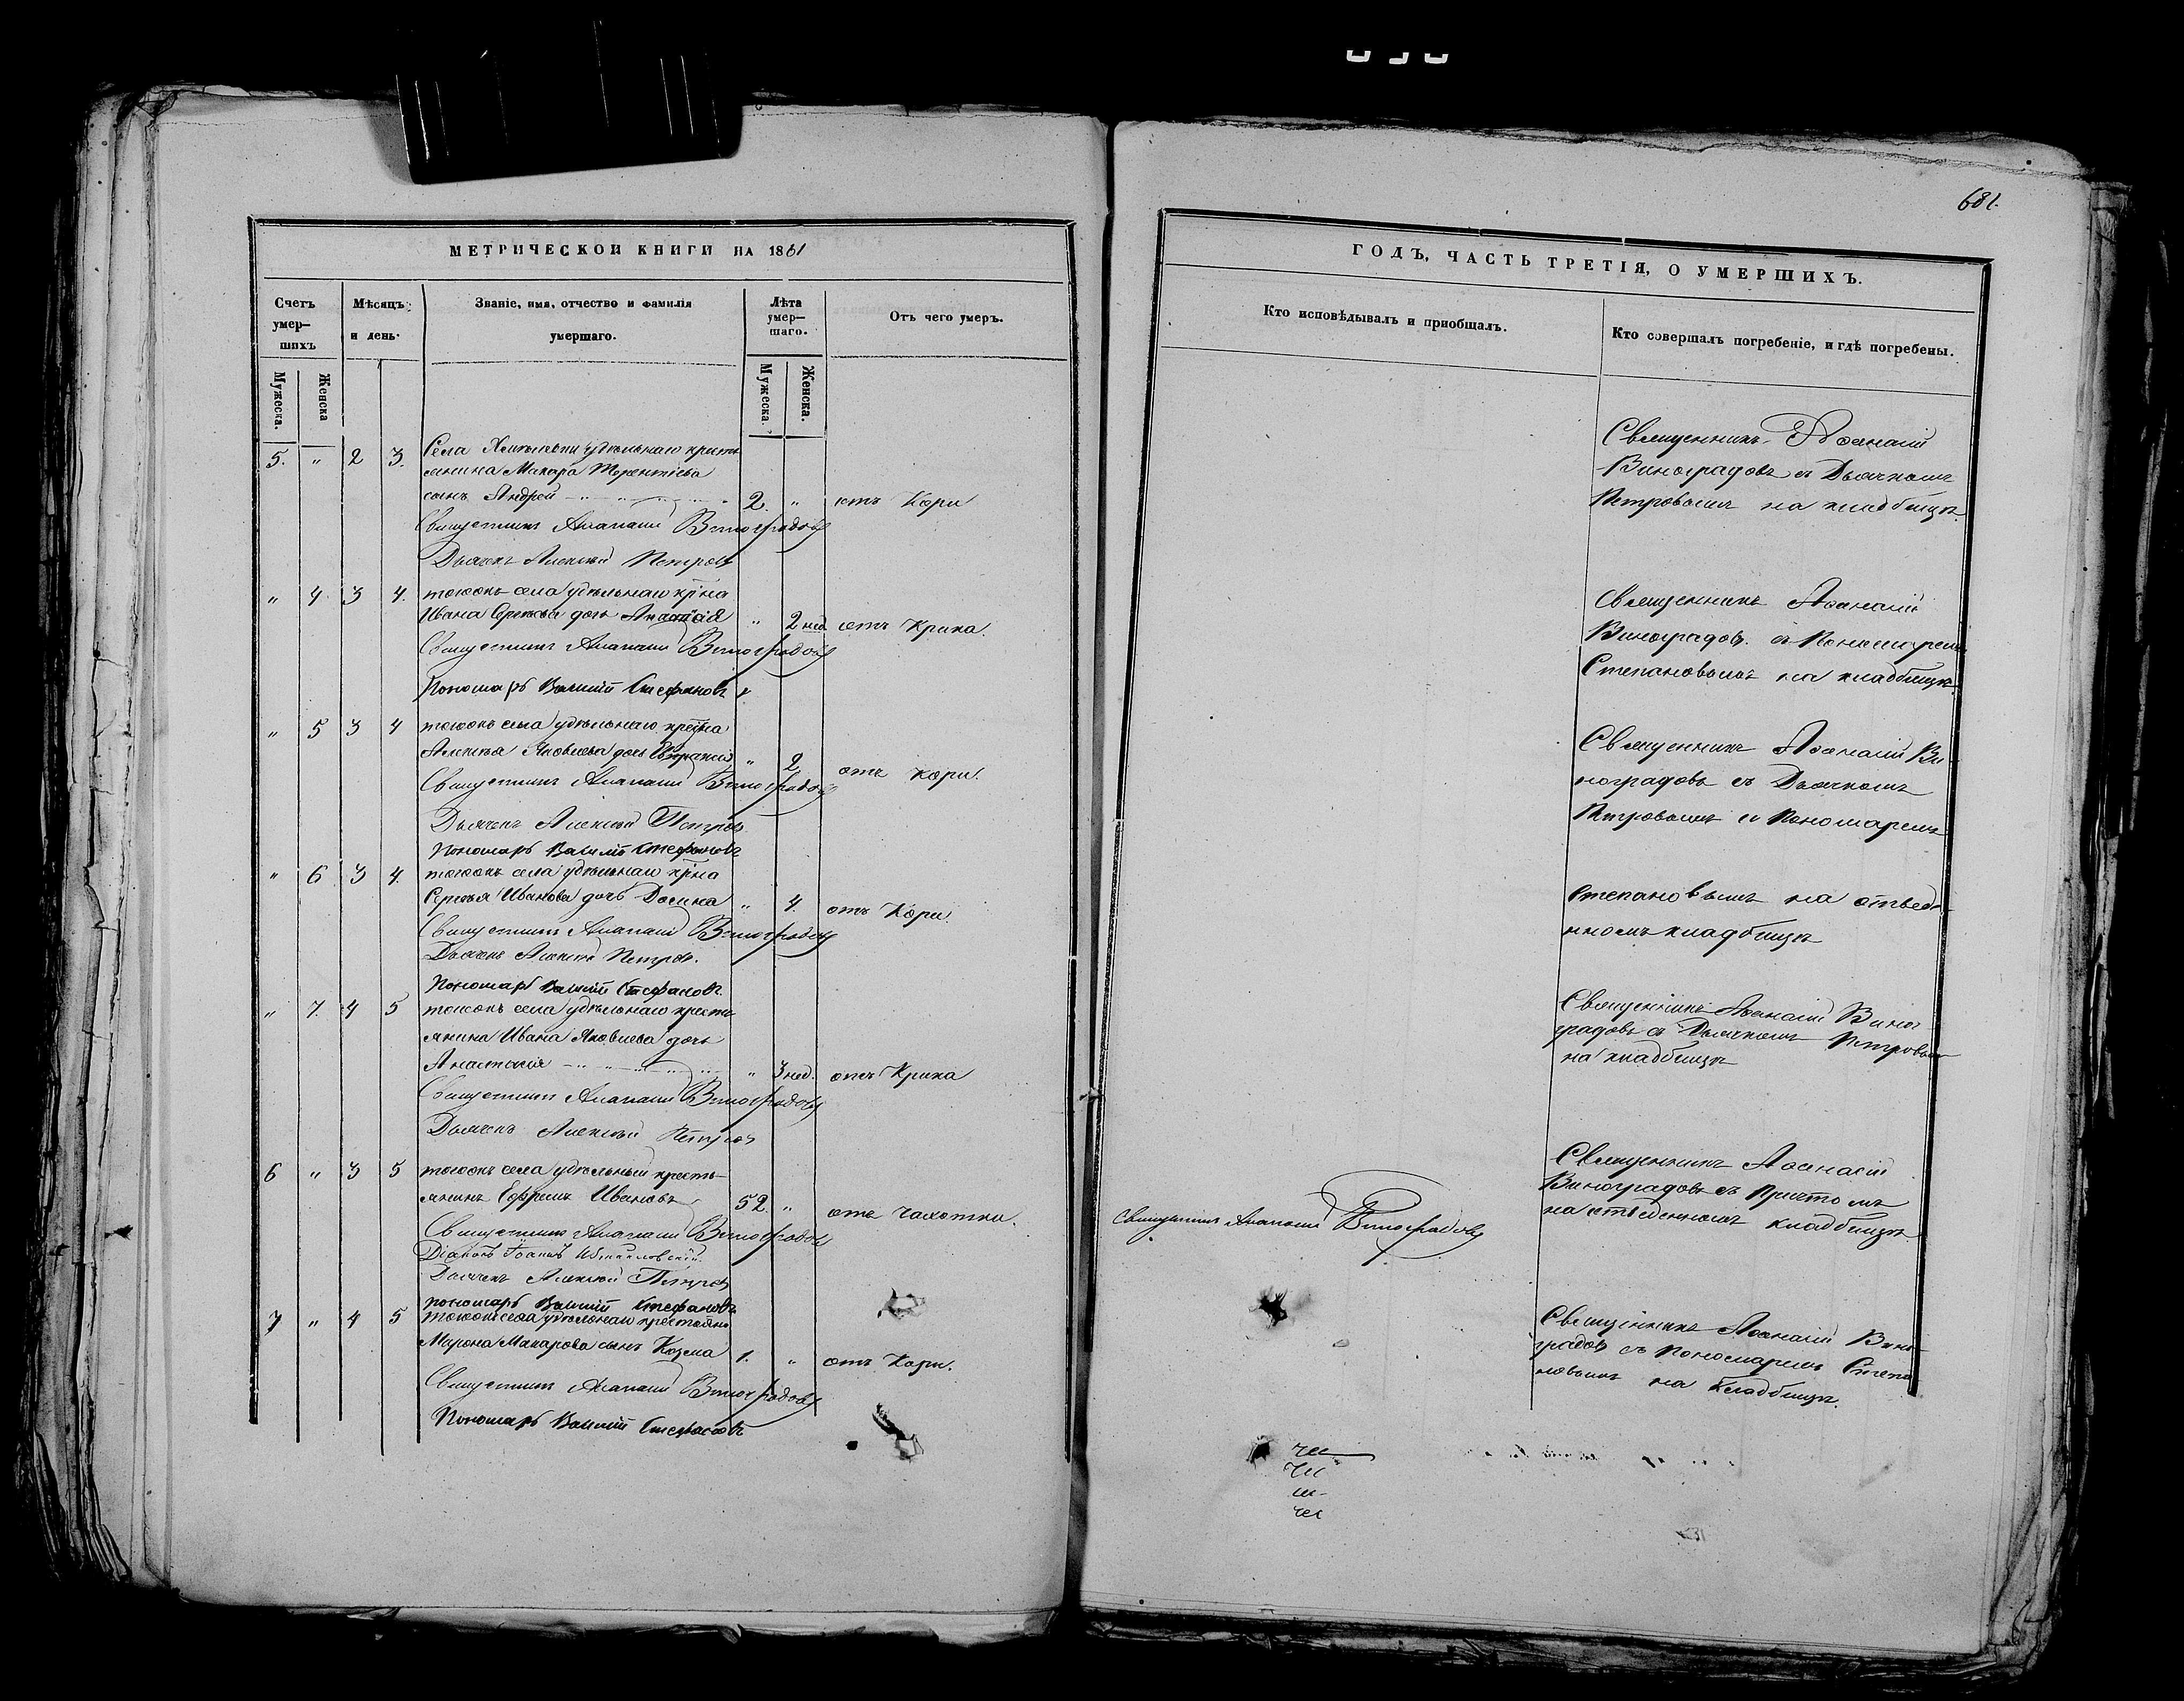 МЕТРИЧЕСКОЙ КНИГИ НА 1861
Счетъ умер–шихъ
Мѣсяцъ и день.
Званіе, имя, отчество и фамилія умершаго.
Лѣта умер–шаго.
Отъ чего умеръ.
Мужеска.
Женска
Мужеска.
Женска.
5. " 2 3. Села удѣльнаго кресть
янина Макара Терентіева
сынъ Андрей 2. " отъ Кори
Священникъ Аѳанасій Виноградовъ
Дьячекъ Алексѣй Петровъ
" 4 3 4. тогожъ села удѣльнаго кр̃на
Ивана Сергѣева дочь Анастасія " 2 нед. отъ Крика.
Священникъ Аѳанасій Виноградовъ
Пономарь Василій Стефановъ
" 5 3 4 тогожъ села удѣльнаго крест̃на
Алексѣя Яковлева дочь " 2 отъ кори.
Священникъ Аѳанасій Виноградовъ
Дьячекъ Алексѣй Петровъ
Пономарь Василій Стефановъ
" 6 3 4. тогожъ села удѣльнаго кр̃на
Сергѣя Иванова дочь " 4. отъ Кори.
Священникъ Аѳанасій Виноградовъ
Дьячекъ Алексѣй Петровъ.
Пономарь Василій Стефановъ.
" 7. 4 5 тогожъ села удѣльнаго кресть
янина Ивана Яковлева дочь
Анастасія " 3 нед. отъ Крика
Священникъ Аѳанасій Виноградовъ
Дьячекъ Алексѣй Петровъ
6 " 3 5 тогожъ села удѣльный кресть–
янинъ Ефремъ Ивановъ 52. " отъ чахотки.
Священникъ Аѳанасій Виноградовъ
Діаконъ Іоаннъ
Дьячекъ Алексѣй Петровъ
пономарь Василій Стефановъ
7 " 4 5 тогожъ села удѣльнаго крестьяна
Мирона Макарова сынъ Козма 1. " отъ Кори.
Священникъ Аѳанасій Виноградовъ
Пономарь Василій Стефановъ
681.
ГОДЪ, ЧАСТЬ ТРЕТІЯ, О УМЕРШИХЪ.
Кто исповѣдывалъ и пріобщалъ.
Кто совершалъ погребеніе, и гдѣ погребены.
Священникъ Аѳанасій
Виноградовъ съ Дьячкомъ
Петровымъ на кладбищѣ.
Священникъ Аѳанасій
Виноградовъ. съ Пономаремъ
Степановымъ на кладбищѣ
Священникъ Аѳанасій Ви–
ноградовъ съ Дьячкомъ
Петровымъ и Пономаремъ
Степановымъ на отведе–
нномъ кладбищѣ
Священникъ Аѳанасій Вино
градовъ съ Дьячкомъ Петровым
на кладбищѣ
Священникъ Аѳанасій
Виноградовъ съ Причтомъ
на отведенномъ кладбищѣ.
Священникъ Аѳанасій Виноградовъ
Священникъ Аѳанасій Вино–
градовъ съ пономаремъ Степа
новымъ на Кладбищѣ.